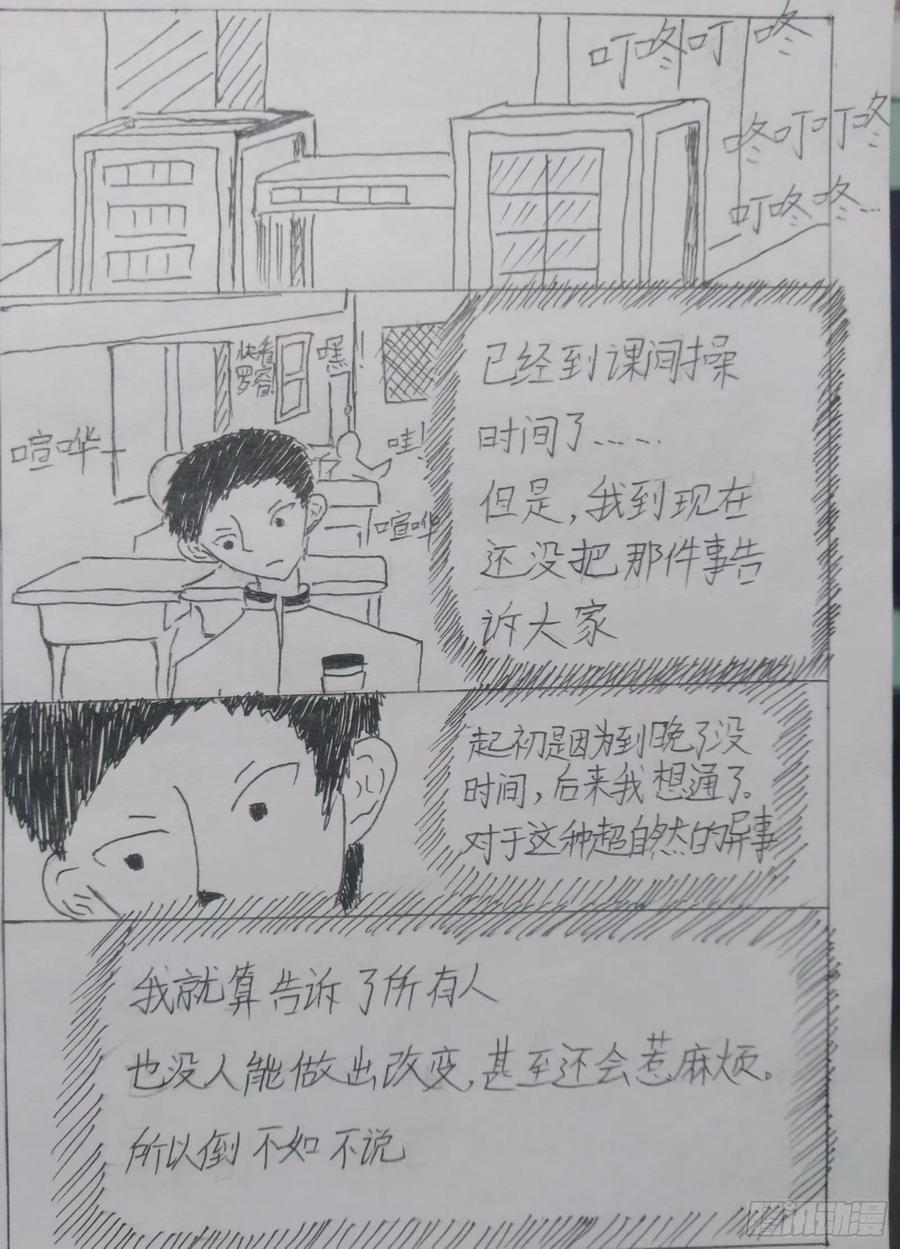 叮咚叮咚
咚叮叮咚
叮咚咚…
快看
罗睿
嘿!
喧哗
哇!
喧哗
已经到课间操
时间了……
但是，我到现在
还没把那件事告
诉大家
起初是因为到晚了没
时间，后来我想通了。
对于这种超自然的屏事
我就算告诉了所有人
也没人能做出改变，甚至还会惹麻烦。
所以倒不如不说
腾讯动漫